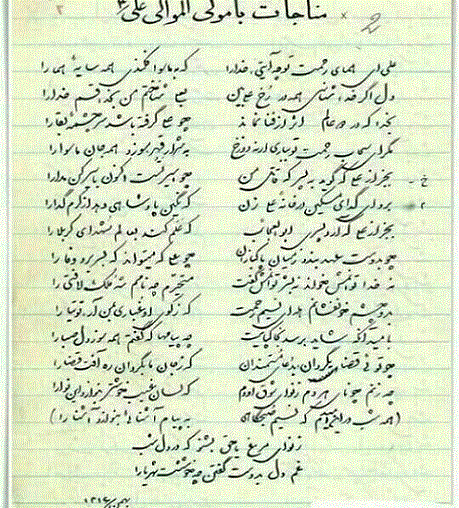 مناجات با مولی الموالی علی ع
علی ای همای رحمت تو چه آیتی خدا را که به ماسوا فکندی همه سایهٔ هما را
دل اگر خداشناسی همه در رخ علی بین به علی شناختم من بخدا قسم خدا را
بخدا که در دو عالم اثر از فنا نماند چو علی گرفته باشد سر چشمهٔ بقا را
مگر ای سحاب رحمت تو بباری ارنه دوزخ به شرار قهر سوزد همه جان ماسوا را
بجز از علی که گوید به پسر که قاتل من چو اسیر تست اکنون باسیر کن مدارا
برو ای گدای مسکین در خانهٔ علی زن که نگین پادشاهی دهد از کرم گدا را
بجز از علی که آرد پسری ابوالعجائب که علم کند بعالم شهدای کربلا را
چو بدوست عهد بندد ز میان پاکبازان چو علی که میتواند که بسر برد وفا را
نه خدا توانمش خواند نه بشر توانمش گفت متحیرم چه نامم شه ملک لافتی را
بدو چشم خونفشانم هله ای نسیم رحمت که ز کوی او غباری بمن آر توتیا را
بامید آنکه شاید برسد بخاک پایت چه پیامها که گفتم همه سوز دل صبا را
چو توئی قضای گردان بدعای مستمندان که ز جان ما بگردان ره آفت قضا را
چه زنم چو نای هر دم ز نوای شوق او دم که لسان غیب خوشتر بنوازد این نوا را
(همه شب در این امیدم که نسیم صبحگاهی به پیام آشنا را بنوازد آشنا را)
ز نوای مرغ یا حق بشنو که در دل شب
غم دل بدوست گفتن چه خوشست شهریارا
بهمن